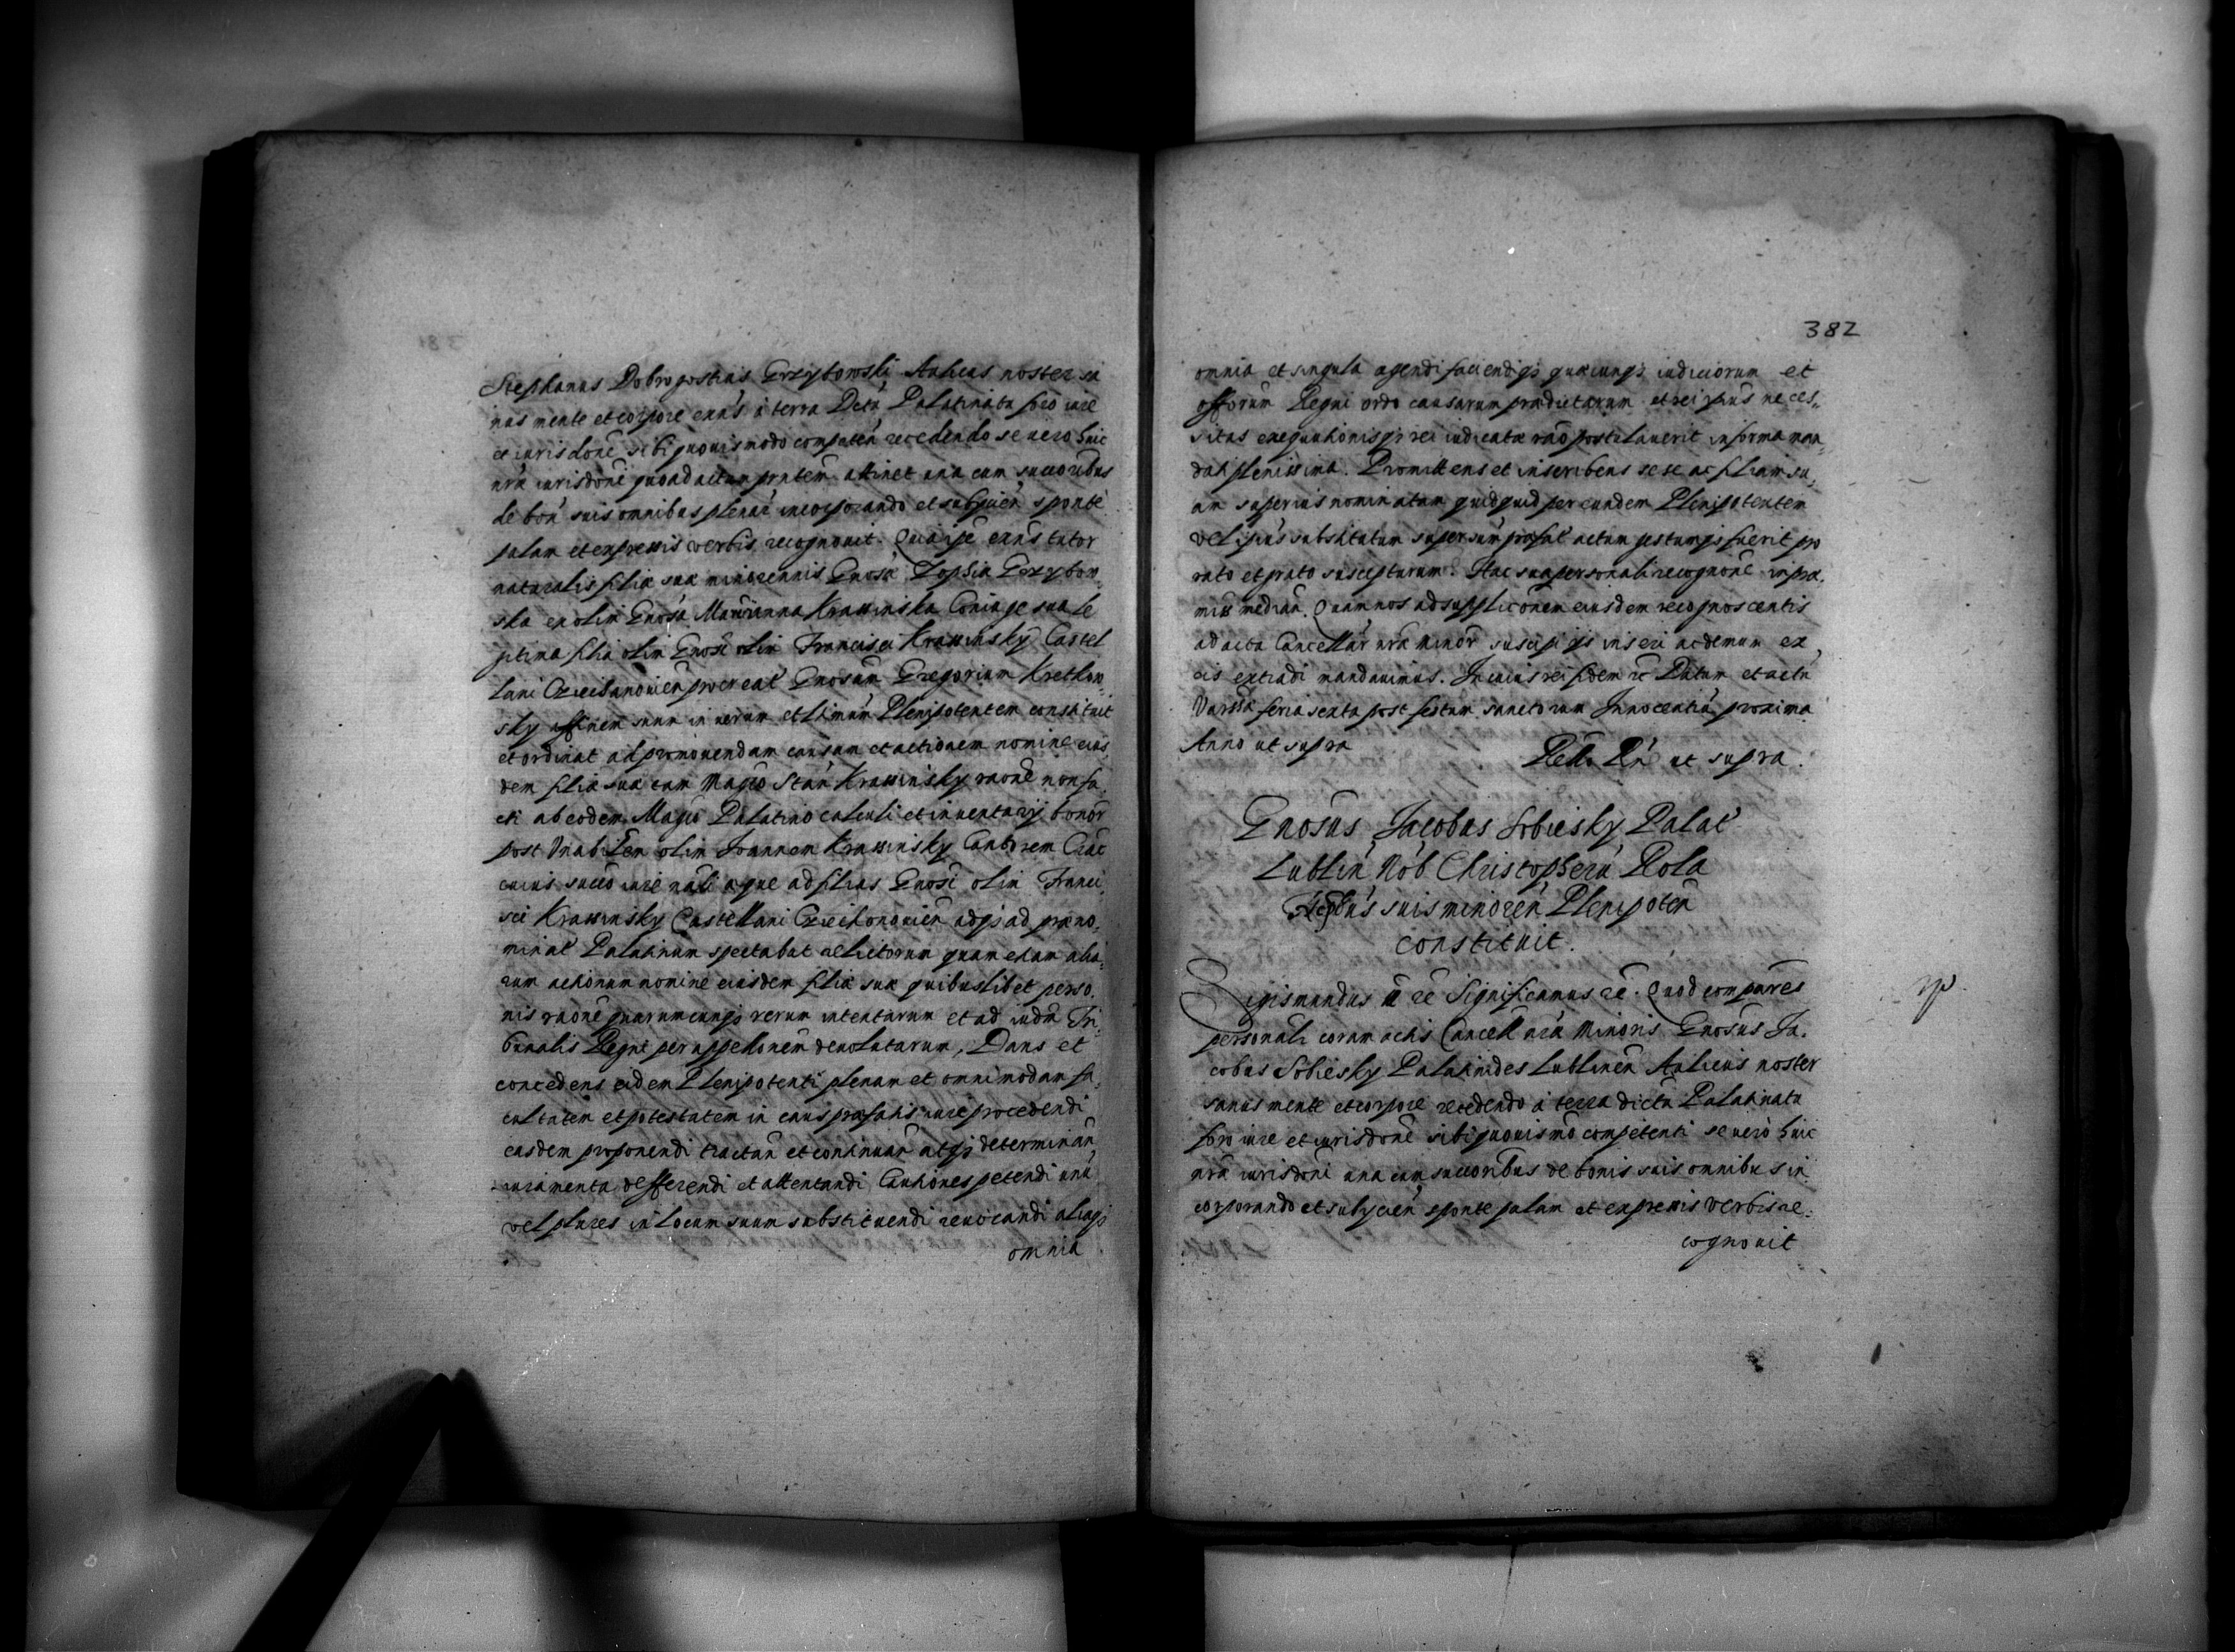 Stephanus Dobrogostius Grzybowski Aulicus noster sa
nus mente et corpore exñs à terra Dctú Palatinatu foro iure
et iurisdonē sibi quouismodo competeñ recedendo se uero huic
nrã iurisdonē quoad actum pñtem attinet una cum succoribus
de boñ suis omnibus plenar incorporando et subycieñ sponte
palam et expressis verbis recognouit. Quia ipē exñs tutor
naturalis filiæ suæ minorennis Gnosæ Zophiæ Grzybow
ska ex olim Gnosa Marianna Krassinska Coniuge sua le
gitima filia olim Gnosi olim Francisci Krassinsky Castel
lani Cziechanouieñ procreat Gnosum Gregorium Kretkow
sky affinem suum in uerum et ltimum Plenipotentem constituit
et ordinat ad promouendam causam et actionem nomine eius
dem filiæ suæ cum Magco Stan Krassinsky raone non fa
cti ab eodem Magco Palatino calculi et inuentarij bonor
post Vnabilem olim Joannem Krassinsky Cantorem Crac
cuius succo iure nãli æque ad filias Gnosi olim Franci
sci Krassinsky Castellani Cziechonouieñ adqz ad præno
minat Palatinum spectabat relictorum quam etiam alia
rum actionum nomine eiusdem filiæ suæ quibuslibet perso
nis raone quarumcunqz rerum intentarum et ad iudm Tri
bunalis Regni per appellonem deuolutarum, Dans et
concedens eidem Plenipotenti plenam et omnimodam fa
cultatem et potestatem in caus præfatis iure procedendi
easdem proponendi tractañ et continuañ atqz determinañ
iuramenta defferendi et attentandi Cautiones petendi unū
vel plures in locum suum substituendi reuocandi aliaqz
omnia
382
omnia et singula agendi faciendiqz quæcunqz iudiciorum et
offorum Regni ordo causarum prædictarum et rei ipius neces
sitas exequutionisqz rei iudicatæ rao postulauerit in forma man
dati plenissima. Promittens et inscribens sese ac filiam su
am superius nominatam quidquid per eundem Plenipotentem
vel ipius substitutum super sum præfat actum gestumqz fuerit pro
rato et grato suscepturum. Hac sua personali recognone in præ
miss median. Quam nos ad suppliconem eiusdem recognoscentis
ad acta Cancellar nræ minor suscipi ijs inseri ac demum ex
eis extradi mandauimus. In cuius rei fidem rc Datum et actū
Varssæ feria sexta post festum sanctorum Innocentiū proxima
Anno ut supra
Rello Rñ ut supra.
Gnosus Jacobus Sobiesky Palat
Lublin Nob Christopherū Rola
rebus suis minoreñ Plenipoteñ
constituit.
Sigismundus III rc Significamus rc. Quod comparēs
personali coram actis Cancell nræ Minoris Gnosus Ja
cobus Sobiesky Palatinides Lublineñ Aulicus noster
sanus mente et corpore recedendo à terra dictu Palatinatu
foro iure et iurisdonē sibi quouismo competenti se uero huic
nrã iurisdoni una cum succoribus de bonis suis omnibus in
corporando et subycieñ sponte palam et expressis verbis re
cognouit